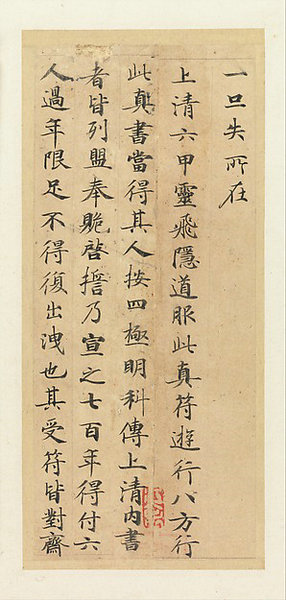 一旦失所在
上清六甲靈飛隱道服此真符遊行八方行
此真書當得其人按四極明科傳上清內書
者皆列盟奉贶啓擔乃宣之七百年得付六
人過年限足不得復出洩也其受符皆對齋